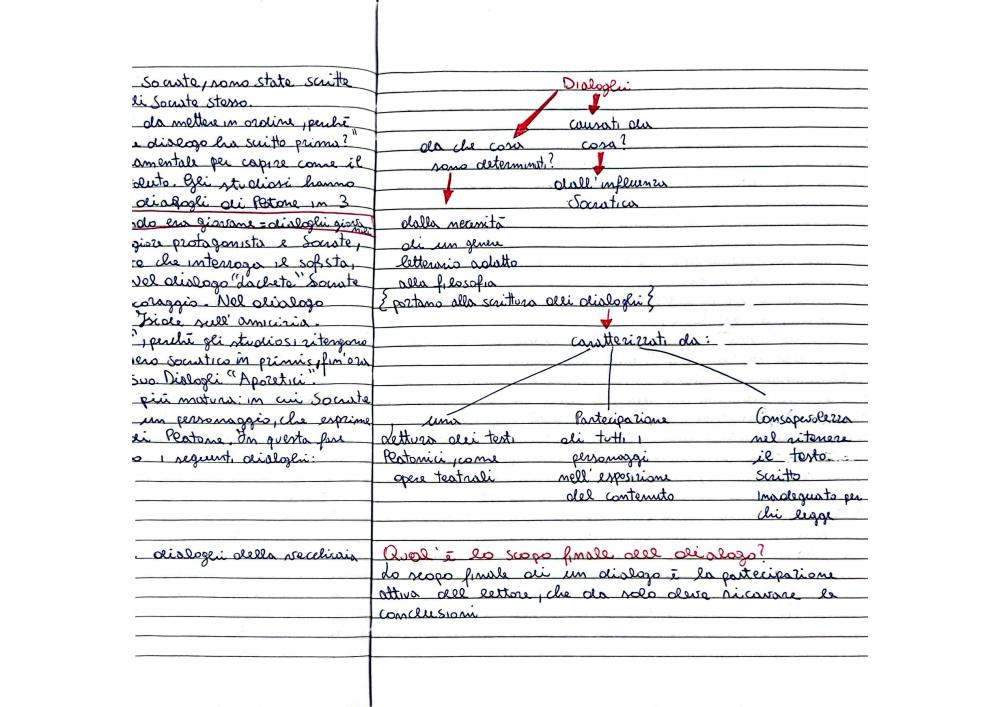 Socrate, sono state scritte
li Socrate stesso.
da mettere in ordine, perché
e dialogo ha scritto prima?"
amentale per capire come il
oluto. Gli studiosi hanno
dialogli di Patone in 3
do era giovane = dialoghi giova
nili
giore protagonista e Socrate,
e che interroga il sofista,
Nel dialogo "Lachete" Socrate
coraggio. Nel dialogo
Iside sull'amicizia.
", perché gli studiosi ritengono
iero socratico in primis, fin'ora
suo Dialogli "Aporetici".
più matura: in cui Socrate
un personaggio, che esprime
di Platone. In questa fase
o i seguenti dialoghi:
. dialoghi della vecchiaia
Dialoghi
causati da
cosa?
dall'influenza
Socratica
da che cosa
sono determinati?
dalla necessità
di un genere
letterario adatto
alla filosofia
{portano alla scrittura dei dialoghi}
caratterizzati da:
una
Lettura dei testi
Platonici, come
opere teatrali
Partecipazione
di tutti i
personaggi
nell'esposizione
del contenuto
Consapevolezza
nel ritenere
il testo
scritto
inadeguato per
chi legge
Qual'è lo scopo finale dell dialogo?
Lo scopo finale di un dialogo è la partecipazione
attiva dell lettore, che da solo deve ricavare le
conclusioni